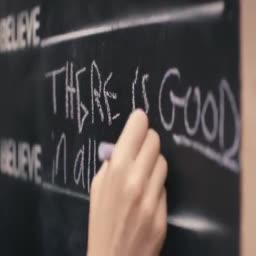 BELIEVE THERE IS GOOD
BELIEVE in all